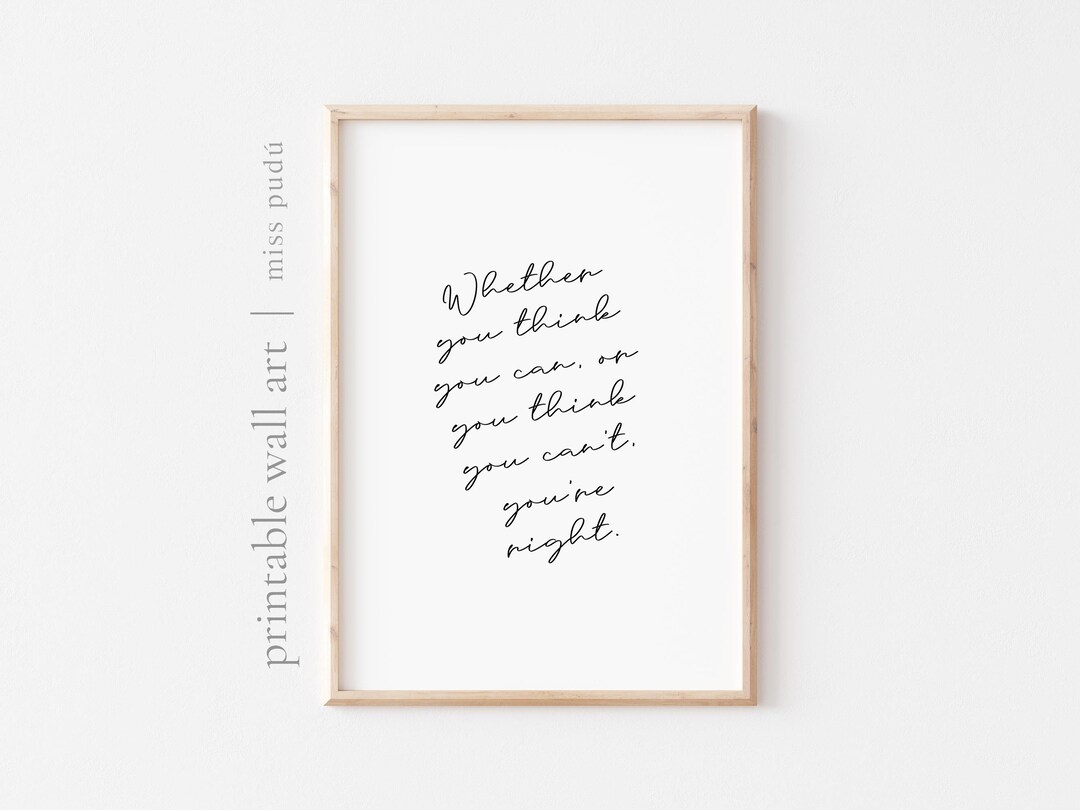 printable wall art | miss pudú
Whether
you think
you can, or
you think
you can't,
you're
right.